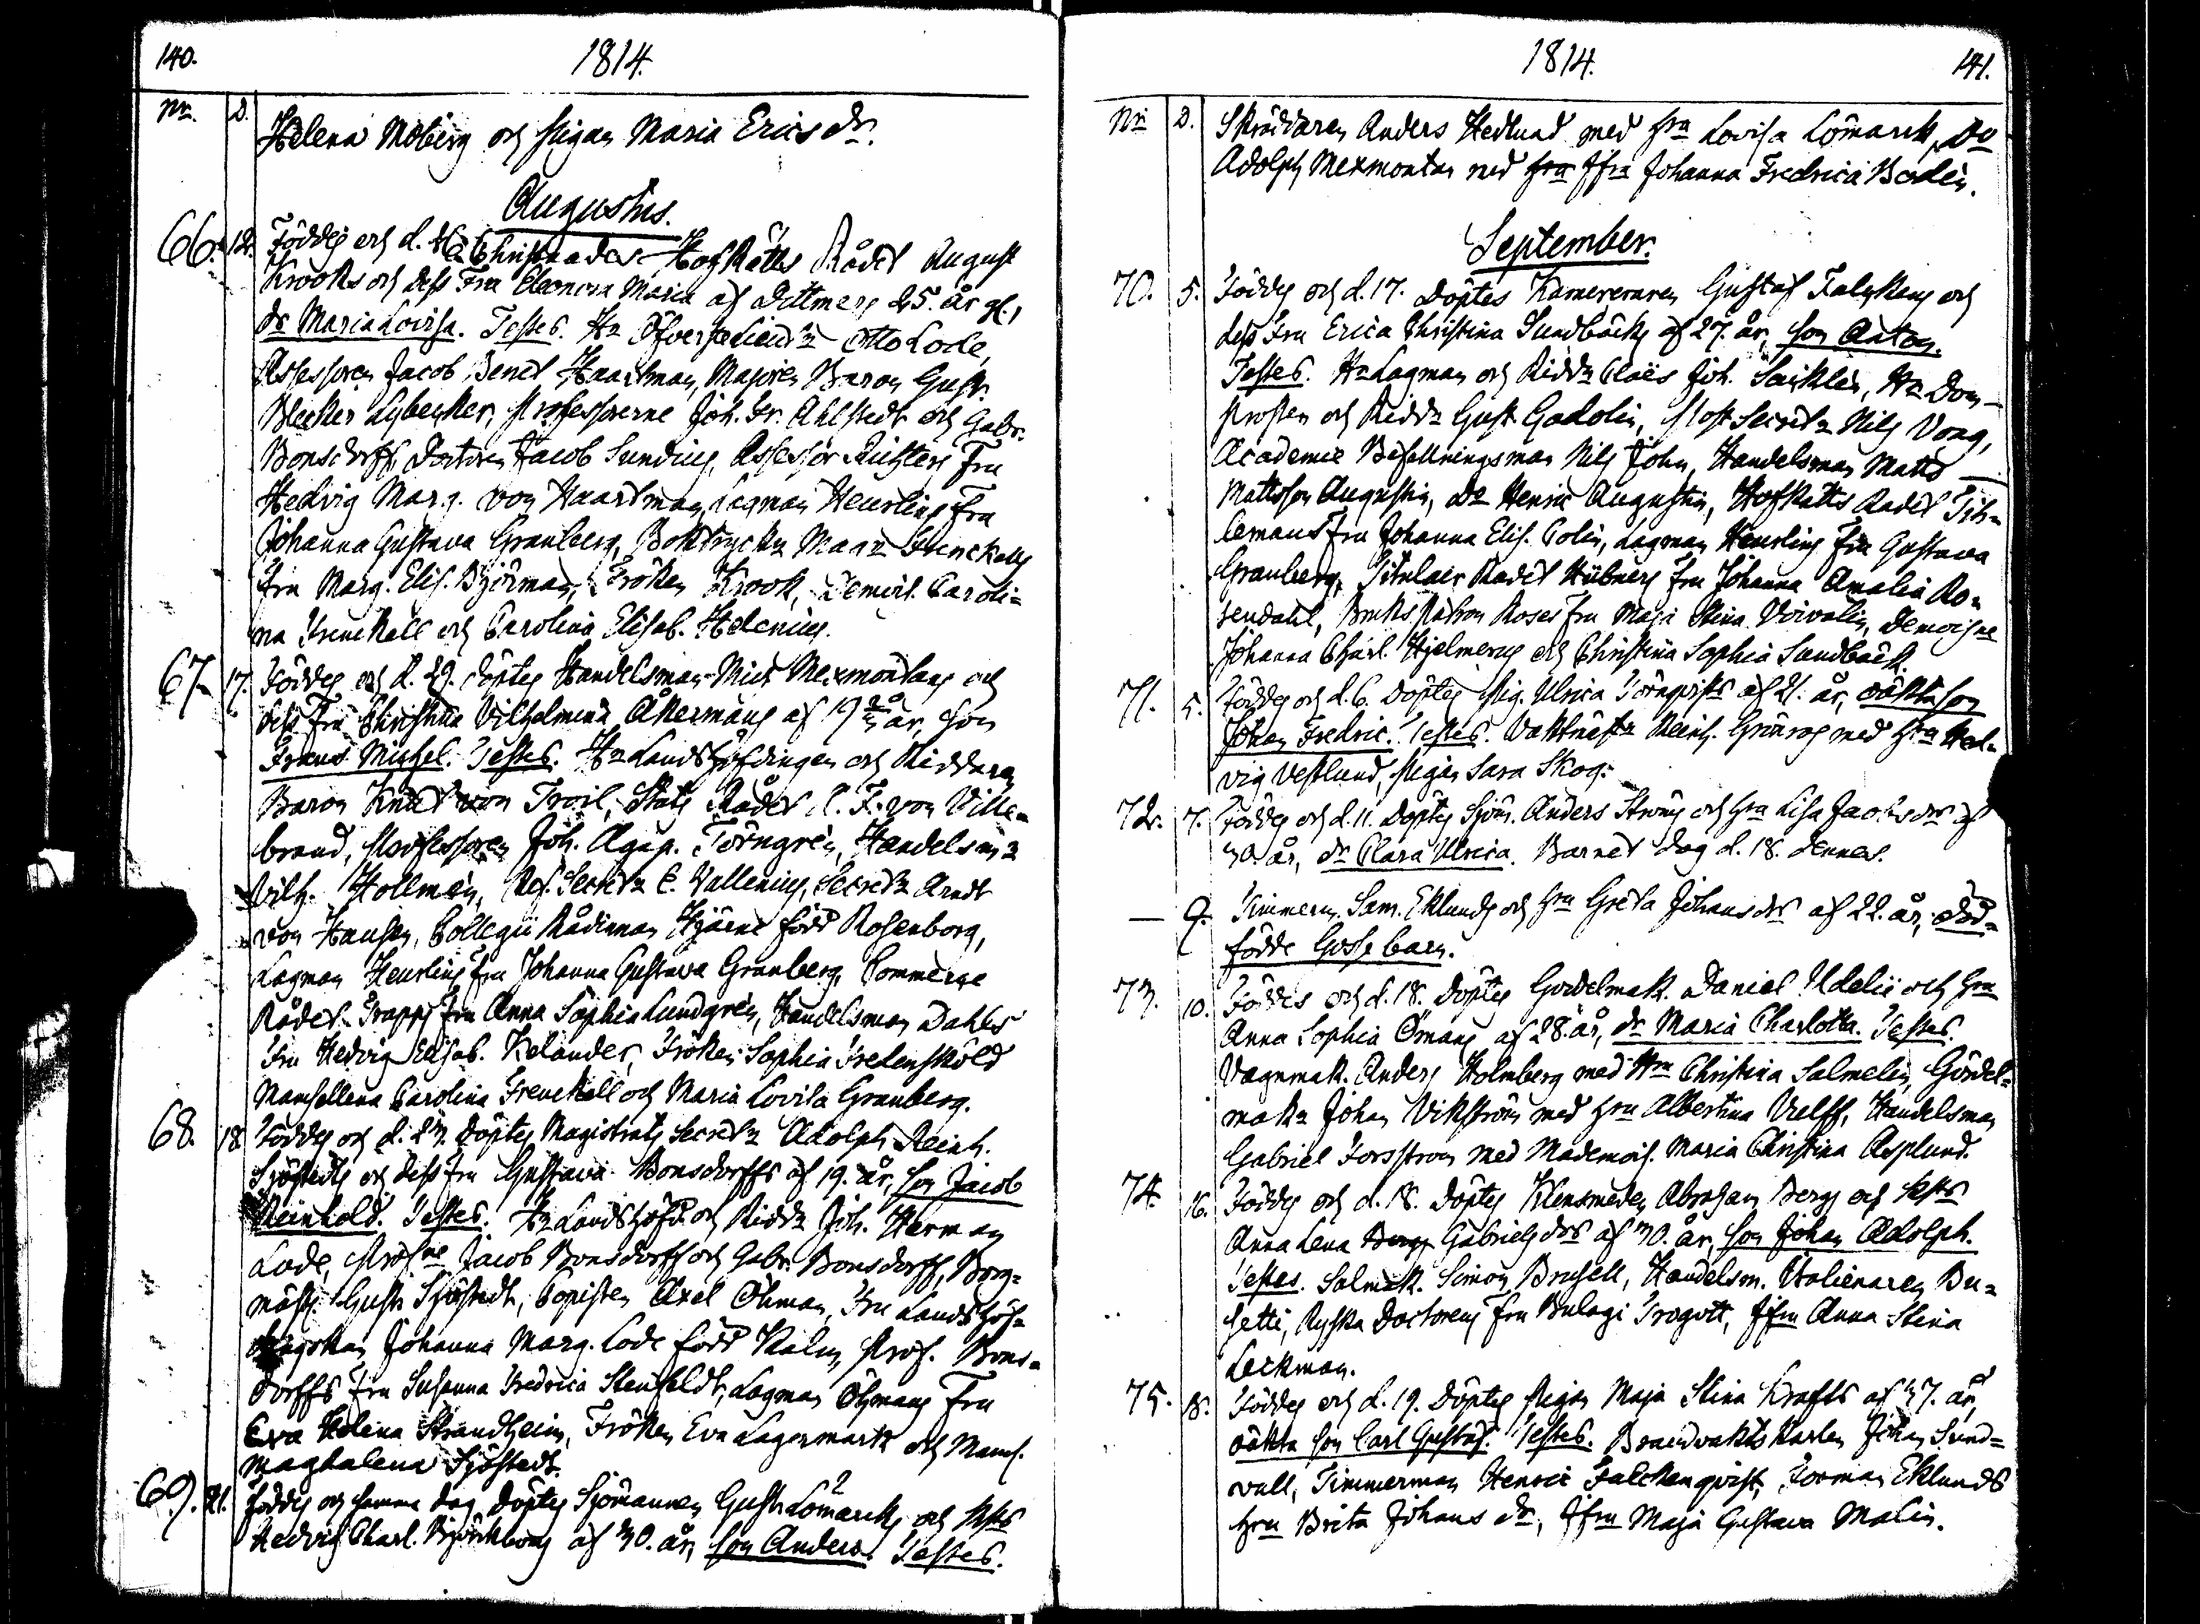 140.
1814.
Nr. D.
Helena Moberg och Pigan Maria Ericsdr.
Augustus.
66. 12. Föddes och d. Christnades HofRätts Rådet August
Krooks och dess Fru Eleonora Maria af Dittmers 25. år gl.,
dr Maria Lovisa. Testes. Hr Öfversteleutn Otto Lode,
Assessoren Jacob Benet Haartman, Majoren Baron Gust.
Lybecker, Professorerne Joh. Fr. Ahlstedt och Gabr.
Bonsdorff, Doctoren Jacob Sundius, Assessor Richters Fru
Hedvig Marg. von Haartman, Lagman Heurlins Fru
Johanna Gustava Granberg, Boktryckr Mag:r Frenckells
Fru Marg. Elis. Björman, Fröken Krook, Demois. Caroli=
na Frenckell och Carolina Elisab. Helenius.
67. 17. Föddes och d. 29. döptes Handelsman Mich Mexmontans och
dess Fru Christina Vilhelmina Åkermans af 19 år, son
Frans Michel. Testes. Hr Landshöfdingen och Riddaren
Baron Knut von Troil, Stats Rådet C. F. von Ville=
brand, Professoren Joh. Agap. Törngren, Handelsm:n
Vilh. Hollmén, Ref. Secret:r C. Vallenius, Secret:r Arndt
von Hausen, Collegii Rådinnan Hjärne född Rosenborg,
Lagman Heurlins fru Johanna Gustava Granberg, Commerce
Rådet Trapps Fru Anna Sophia Lundgren, Handelsman Dahls
Fru Hedvig Elisab. Kelander, Fröken Sophia Fredensköld
Mamsellena Carolina Frenckell och Maria Lovisa Granberg.
68. 18. Föddes och d. 23. döptes Magistrats Secret:r Adolph Reinh.
Sjöstedts och dess fru Gustava Bonsdorffs af 19. år, son Jacob
Reinhold. Testes. Hr Landshöfd. och Riddr Joh. Herman
Lode, Profne Jacob Bonsdorff och Gabr. Bonsdorff, Borg=
mäst. Gust. Sjöstedt, Copisten Axel Öhman, Fru Landshöf=
dingskan Johanna Marg. Lode född Kalm, Prof. Bons=
dorffs fru Susanna Fredrica Stenfeldt, Lagman Öhmans Fru
Eva Helena Strandheim, Fröken Eva Lagermark och Mams.
Magdalena Sjöstedt.
69. 21. Föddes och samma dag döptes Sjömannen Gust. Lömarks och Hs
Hedvig Charl. Björkboms af 30. år, son Anders. Testes.
1814.
141.
Nr D.
Skräddaren Anders Hedlund med hru Lovisa Lömarck, Do
Adolph Mexmontan med hru Jfru Johanna Fredrica Bodin.
September.
70. 5. Föddes och d. 17. döptes Kamereraren Gustaf Falckens och
dess Fru Erica Christina Sundbäcks af 27. år, son Anton.
Testes. Hr Lagman och Riddr Claës Joh. Sacklén, Hr Dom-
prosten och Riddr Gust. Gadolin, Post Secret:r Nils Vong,
Academie Befallningsman Nils John, Handelsman Matts
Mattsson Augustin, Do Henric Augustin, HofRätts Rådet Tih=
lemans fru Johanna Elis. Polin, Lagman Heurlins fru Gustava
Granberg, Titulair Rådet Hübners fru Johanna Amalia Ro=
sendahl, Bruks Patron Roses fru Maja Stina Voivalin, Demoisne
Johanna Charl. Hjelmerus och Christina Sophia Sundbäck.
71. 5. Föddes och d. 6. döptes Pig. Ulrica Törnqvists af 21. år, oäkta son
Johan Fredric. Testes. Vaktmäst:r Reinh. Grönros med hru Hed=
vig Vestlund, Pigan Sara Skog.
72. 7. Föddes och d. 11. döptes Sjöm. Anders Ströms och hru Lisa Jacobsdrs af
30. år, dr Clara Ulrica. Barnet dog d. 18. dennes.
— 9. Timmerm. Sam. Eklunds och hru Greta Johansdrs af 22. år, död=
födde Gossebarn.
73. 10. Föddes och d. 18. döptes Gördelmak. Daniel Udelii och hru
Anna Sophia Ömans af 28. år, dr Maria Charlotta. Testes.
Vagnmak. Anders Holmberg med Hru Christina Salmelin, Gördel=
makr Johan Vikström med hru Albertina Vielff, Handelsman
Gabriel Forsström med Mademois. Maria Christina Asplund.
74. 16. Föddes och d. 18. döptes Klensmeden Abraham Bergs och Hs
Anna Lena Bergs Gabrielsdrs af 30. år, son Johan Adolph.
Testes. Salmak. Simon Brusell, Handelsm. Italienaren Bu=
setti, Ryska Doctorens fru Pulagi Trogott, Jfru Anna Stina
Leckman.
75. 18. Föddes och d. 19. döptes Pigan Maja Stina Krafts af 37. år,
oäkta son Carl Gustaf. Testes. Brandvakts Karlen Johan Sund=
vall, Timmerman Henric Falckenqvist, Forman Eklunds
hru Brita Johansdr, Jfru Maja Gustava Malin.